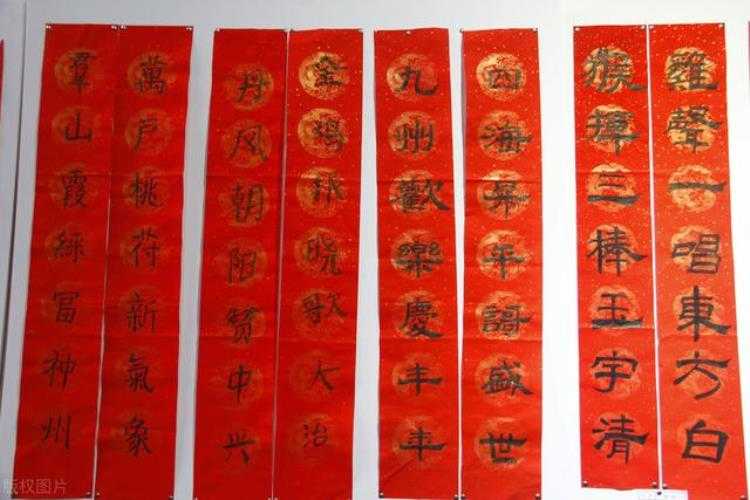 雞聲一唱東方白
猴揮三棒玉宇清
四海昇平謌盛世
九州歡樂慶丰年
金鸡报晓歌大治
丹凤朝阳贺中兴
萬户桃符新氣象
羣山霞綵冨神州
版权图片